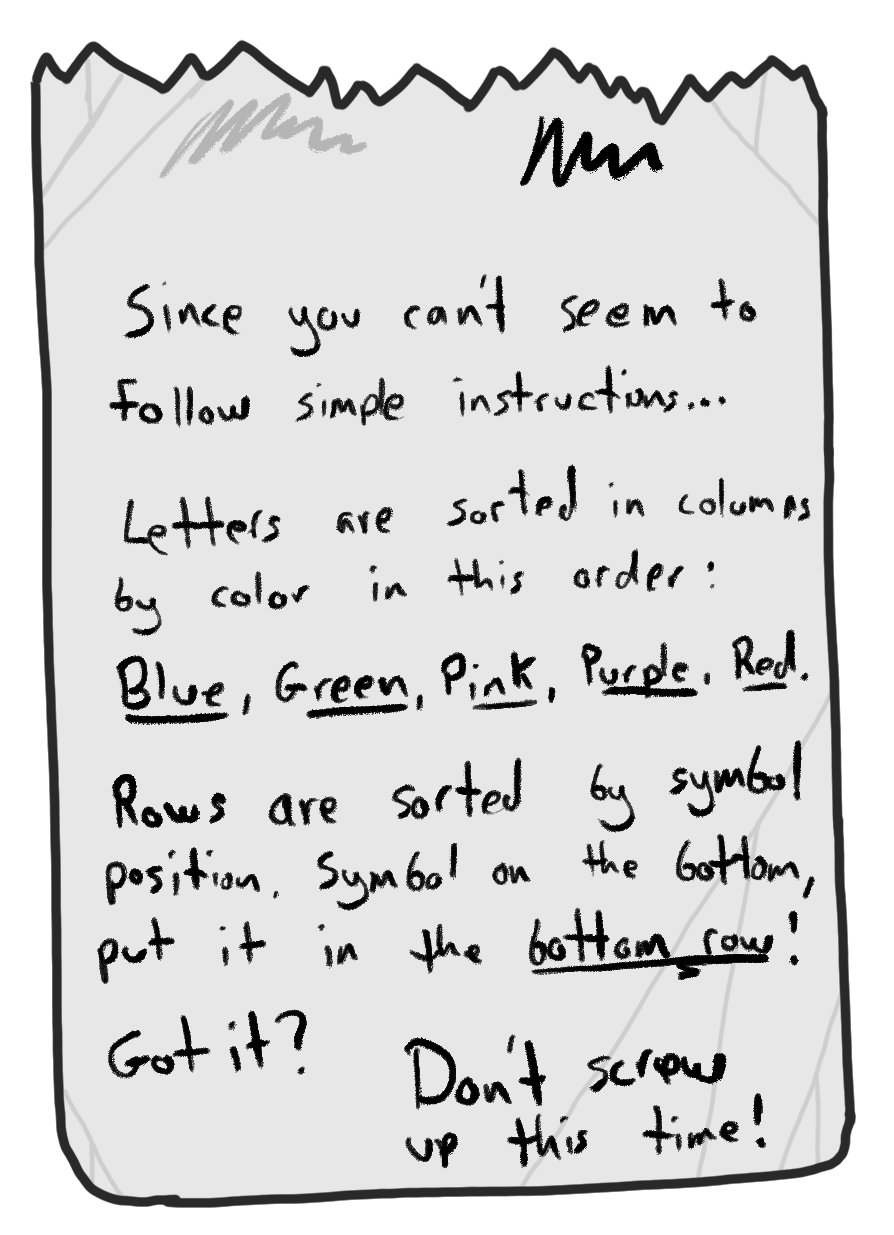 Since you can't seem to
follow simple instructions...
Letters are sorted in columns
by color in this order:
Blue, Green, Pink, Purple, Red.
Rows are sorted by symbol
position. Symbol on the bottom,
put it in the bottom row!
Got it?
Don't screw
up this time!